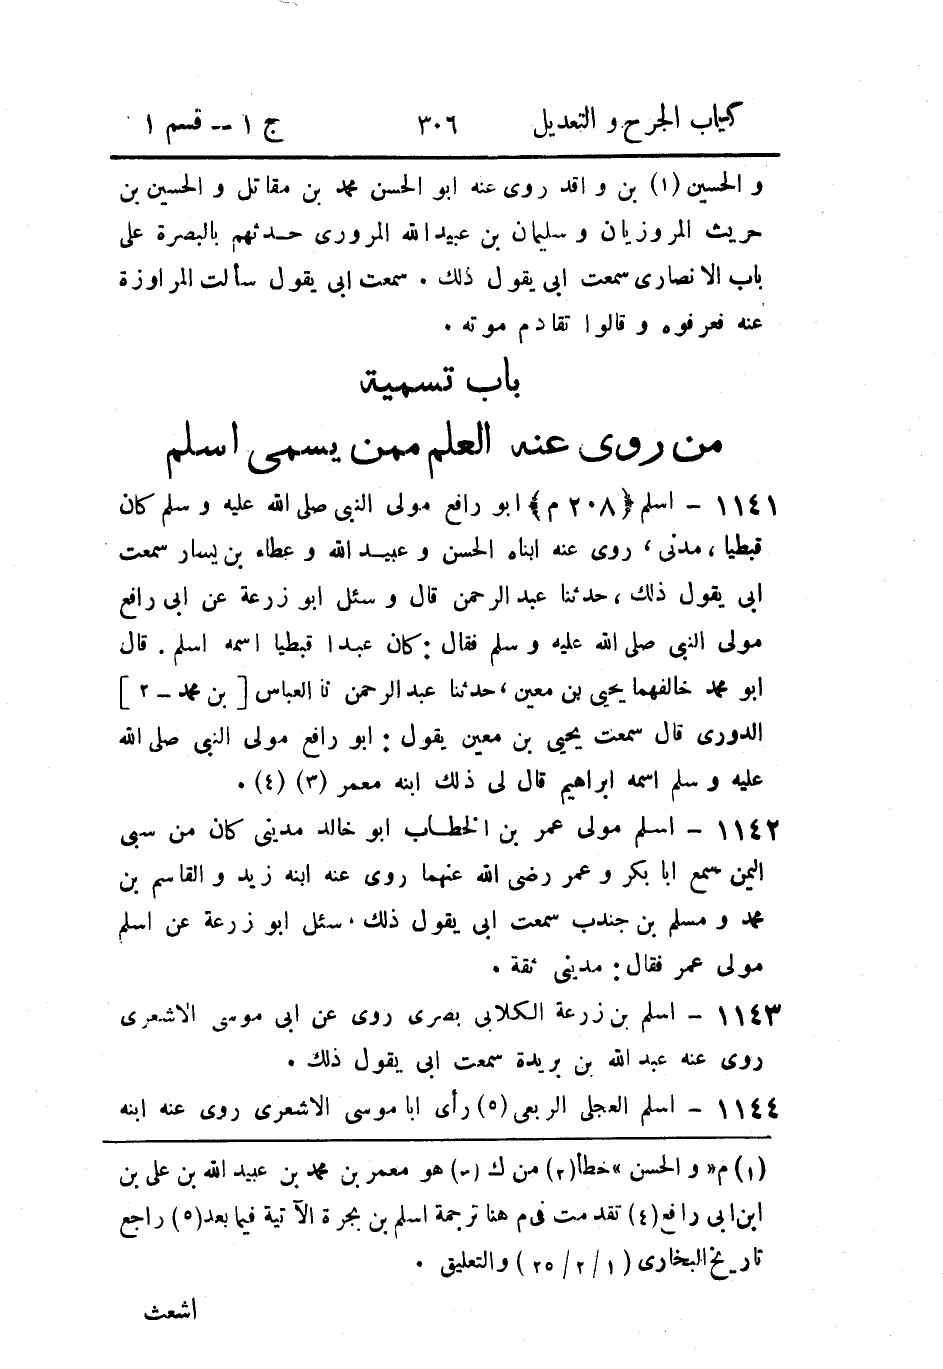 كتاب الجرح و التعديل ٣٠٦ ج ١ -- قسم ١
و الحسين (١) بن و اقد روى عنه ابو الحسن محمد بن مقاتل و الحسين بن
حريث المروزيان و سليمان بن عبيد الله المرورى حدثهم بالبصرة على
باب الانصارى سمعت ابى يقول ذلك . سمعت ابى يقول سألت المراوزة
عنه فعرفوه و قالوا تقادم موته .
باب تسمية
من روى عنه العلم ممن يسمى اسلم
١١٤١ - اسلم ﴿٢٠٨ م﴾ ابو رافع مولى النبى صلى الله عليه و سلم كان
قبطيا ، مدنى ، روى عنه ابناه الحسن و عبيد الله و عطاء بن يسار سمعت
ابى يقول ذلك ، حدثنا عبد الرحمن قال و سئل ابو زرعة عن ابى رافع
مولى النبى صلى الله عليه و سلم فقال : كان عبدا قبطيا اسمه اسلم . قال
ابو محمد خالفهما يحيى بن معين ، حدثنا عبد الرحمن نا العباس [ بن محمد - ٢ ]
الدورى قال سمعت يحيى بن معين يقول : ابو رافع مولى النبى صلى الله
عليه و سلم اسمه ابراهيم قال لى ذلك ابنه معمر (٣) (٤) .
١١٤٢ - اسلم مولى عمر بن الخطاب ابو خالد مدينى كان من سبى
اليمن سمع ابا بكر و عمر رضى الله عنهما روى عنه ابنه زيد و القاسم بن
محمد و مسلم بن جندب سمعت ابى يقول ذلك ، سئل ابو زرعة عن اسلم
مولى عمر فقال : مدينى ثقة .
١١٤٣ - اسلم بن زرعة الكلابى بصرى روى عن ابى موسى الاشعرى
روى عنه عبد الله بن بريدة سمعت ابى يقول ذلك .
١١٤٤ - اسلم العجلى الربعى (٥) رأى ابا موسى الاشعرى روى عنه ابنه
(١) م « و الحسن » خطأ (٢) من ك (٣) هو معمر بن محمد بن عبيد الله بن على بن
ابن ابى رافع (٤) تقدمت فى م هنا ترجمة اسلم بن بجرة الآتية فيما بعد (٥) راجع
تاريخ البخارى ( ١ / ٢ / ٢٥ ) و التعليق .
اشعث